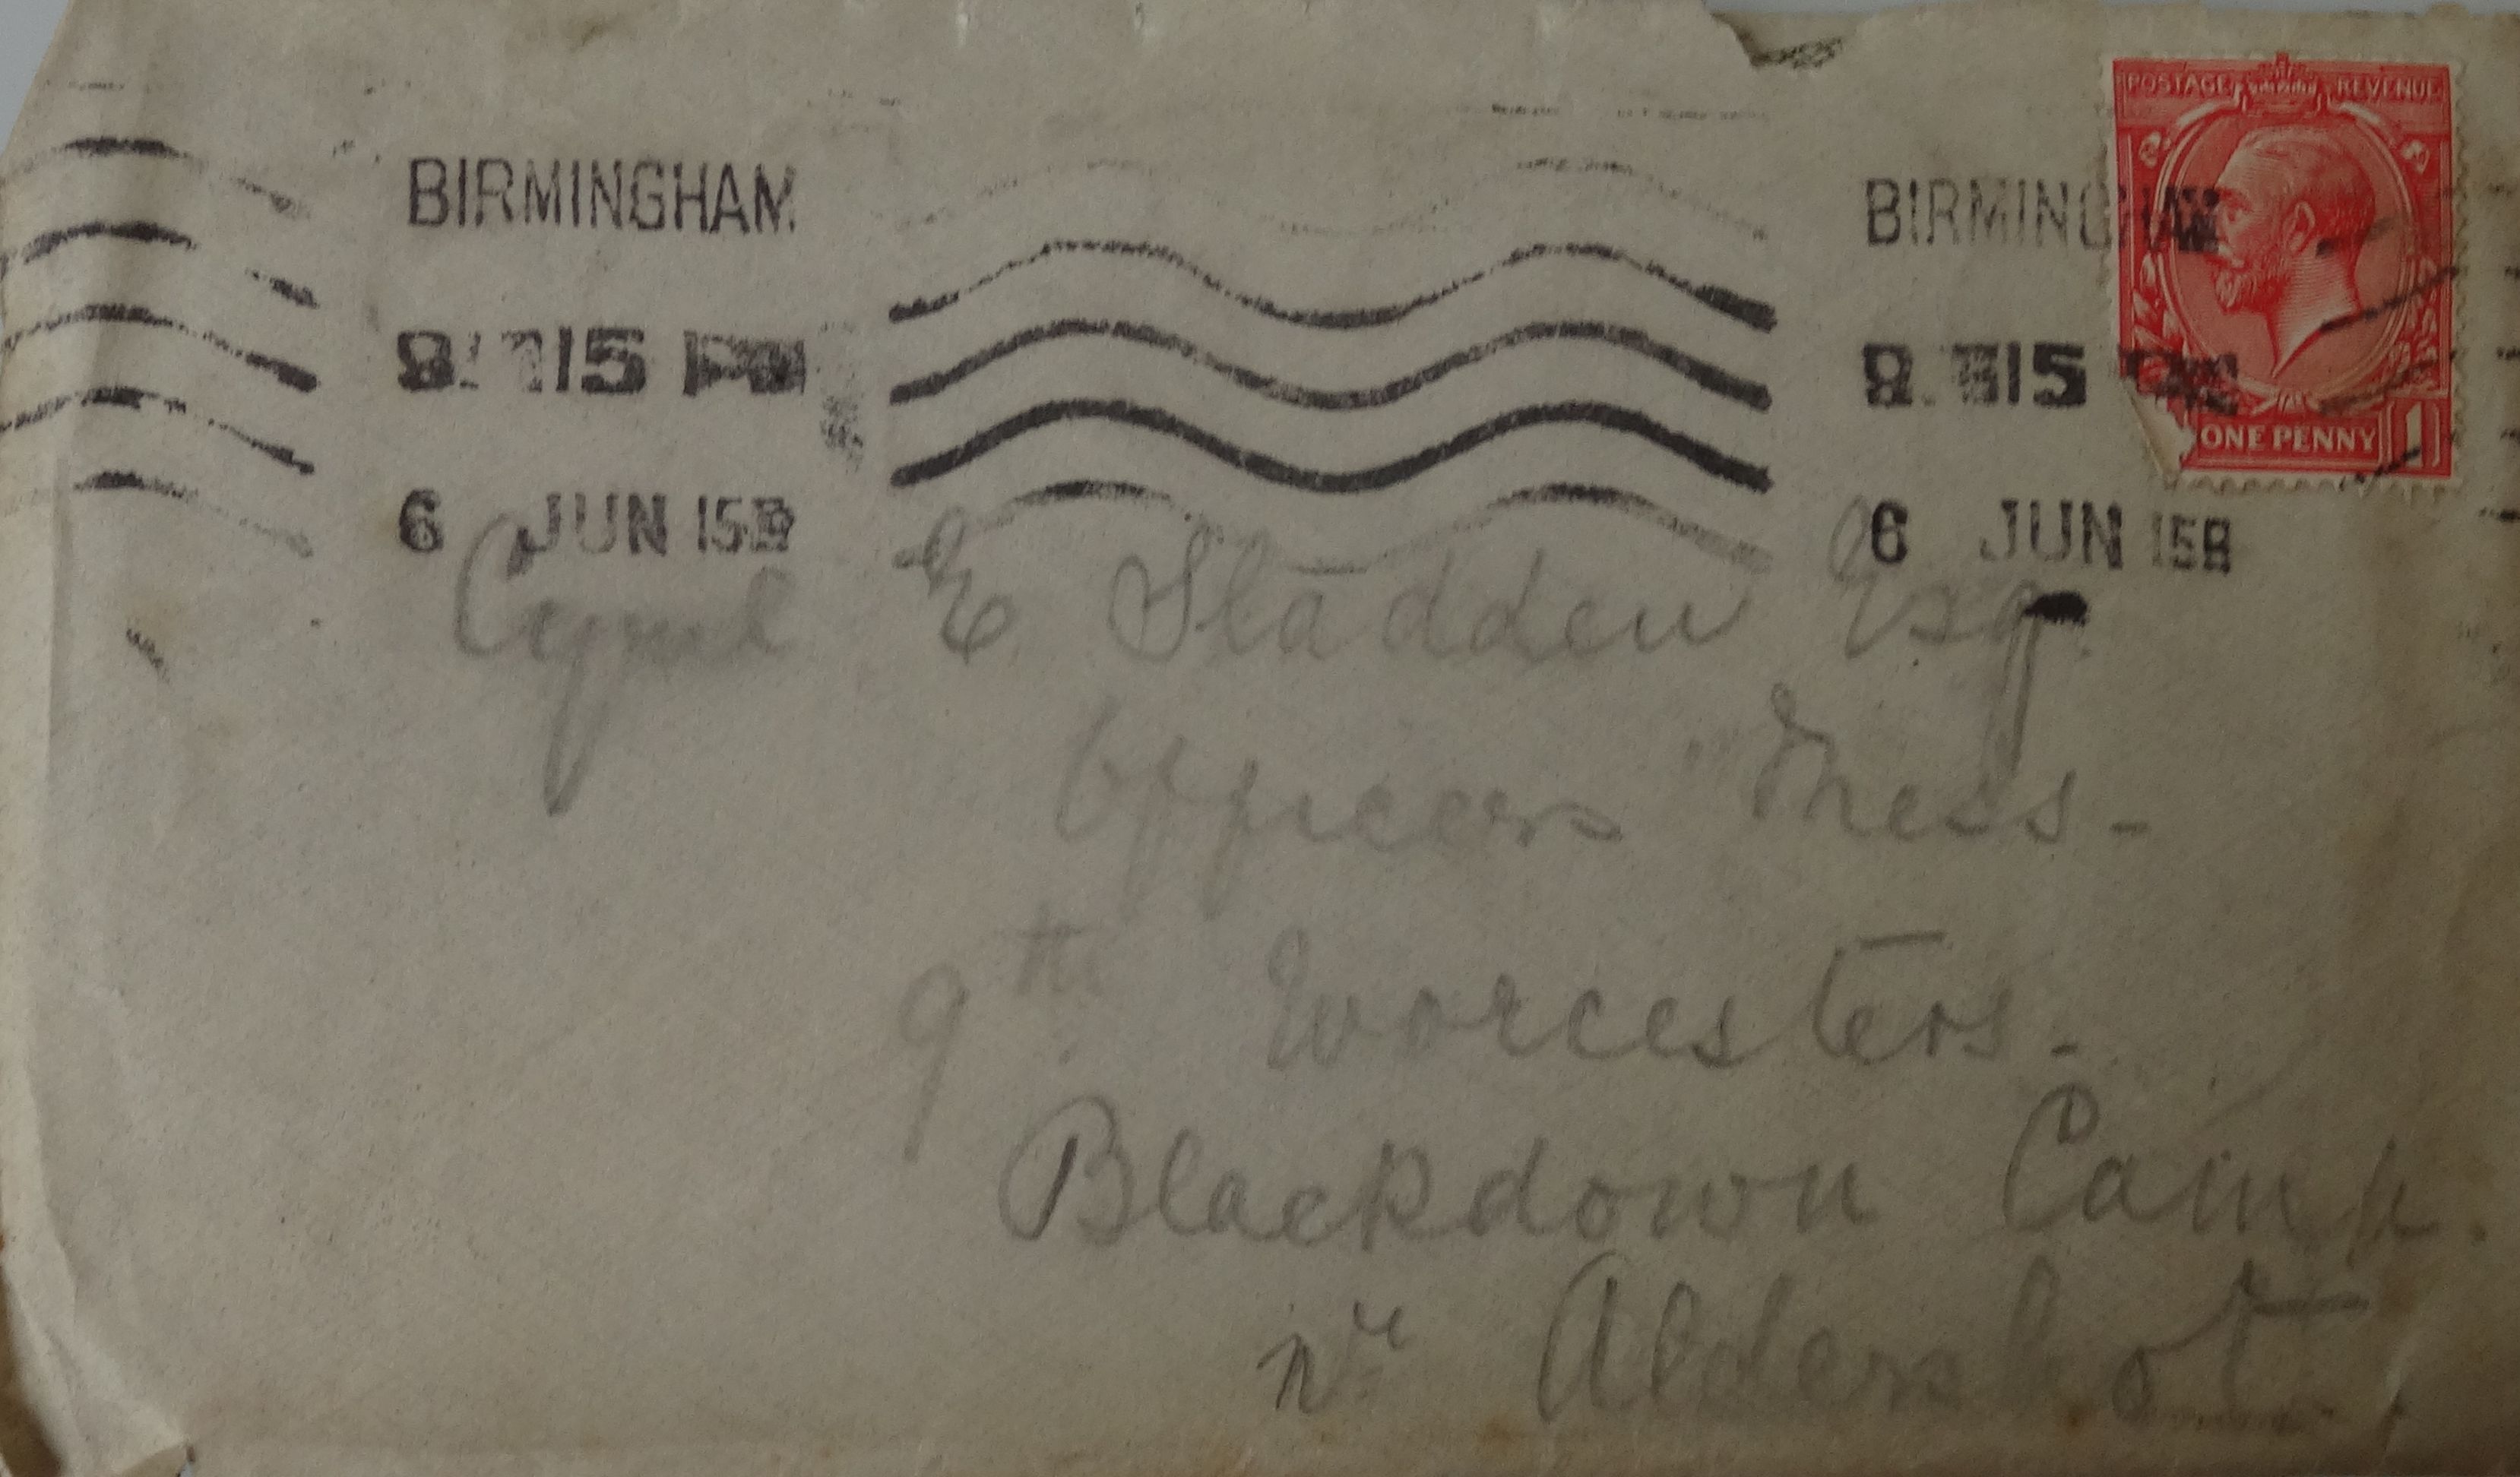 POSTAGE REVENUE
BIRMINGHAM BIRMINGHAM
8. 15 PM 8. 15
ONE PENNY 1
6 JUN 15 6 JUN 15
Cyril E Sladden Esq.
Officers Mess -
9th Worcesters.
Blackdown Camp.
nr Aldershot.